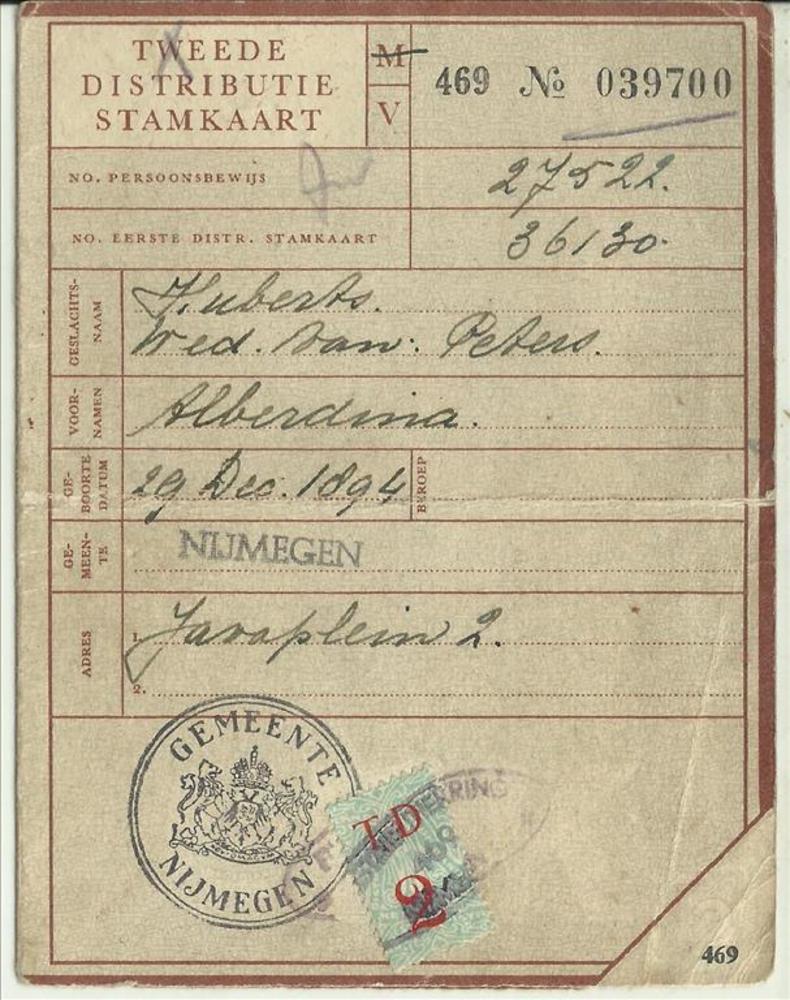 TWEEDE
DISTRIBUTIE
STAMKAART
M
V
469 № 039700
NO. PERSOONSBEWIJS
27522.
NO. EERSTE DISTR. STAMKAART
36130.
GESLACHTS-
NAAM
Huberts.
Wed. van: Peters.
VOOR-
NAMEN
Alberdina.
GE-
BOORTE
DATUM
29 Dec. 1894
BEROEP
GE-
MEEN-
TE
NIJMEGEN
ADRES
1. Javaplein 2.
2.
GEMEENTE
NIJMEGEN
TD
2
469